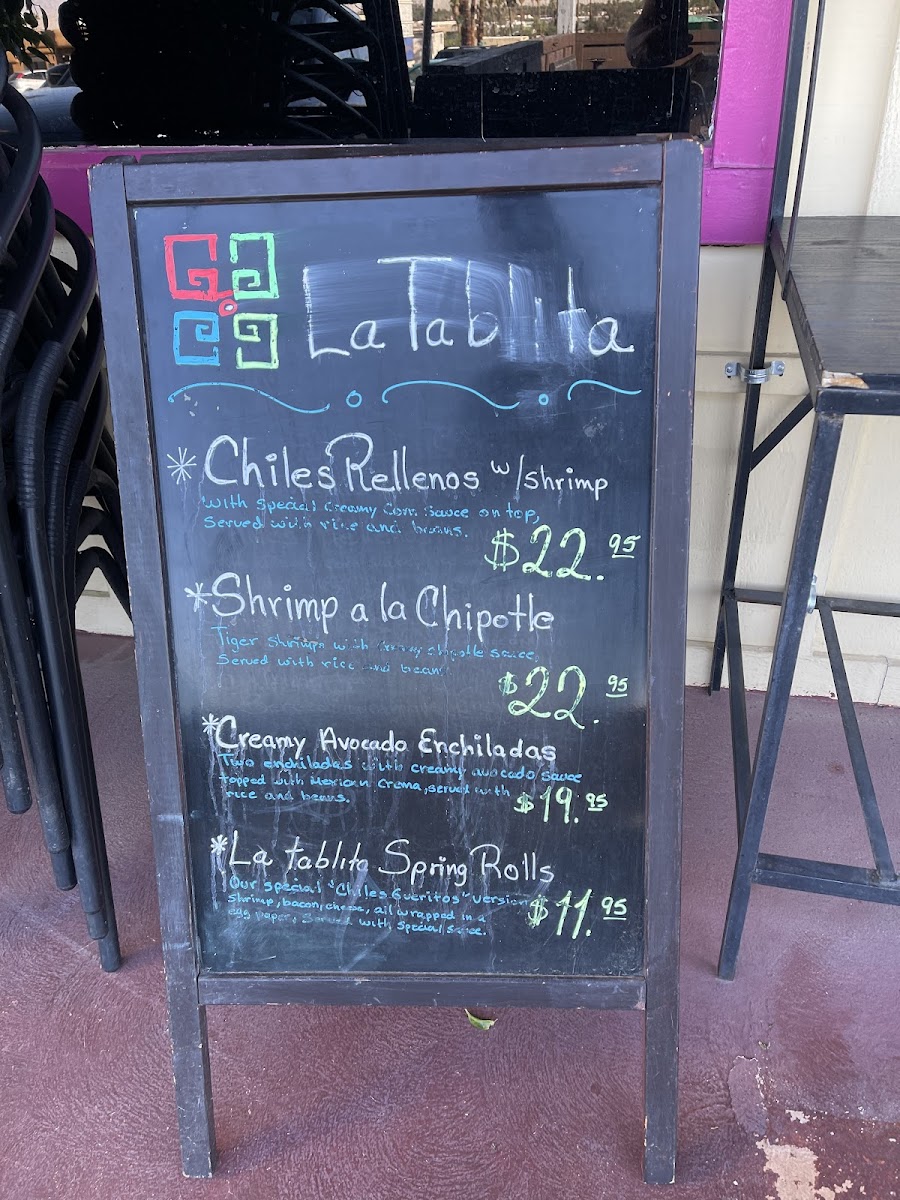 La Tablita
* Chiles Rellenos w/shrimp
with special creamy corn sauce on top,
Served with rice and beans.
$22.95
* Shrimp a la Chipotle
Tiger shrimps with creamy chipotle sauce,
Served with rice and beans
$22.95
* Creamy Avocado Enchiladas
Two enchiladas with creamy avocado sauce
topped with Mexican crema, served with
rice and beans.
$19.95
* La tablita Spring Rolls
Our special "Chiles Gueritos" version
Shrimp, bacon, cheese, all wrapped in a
egg paper, Served with special sauce.
$11.95